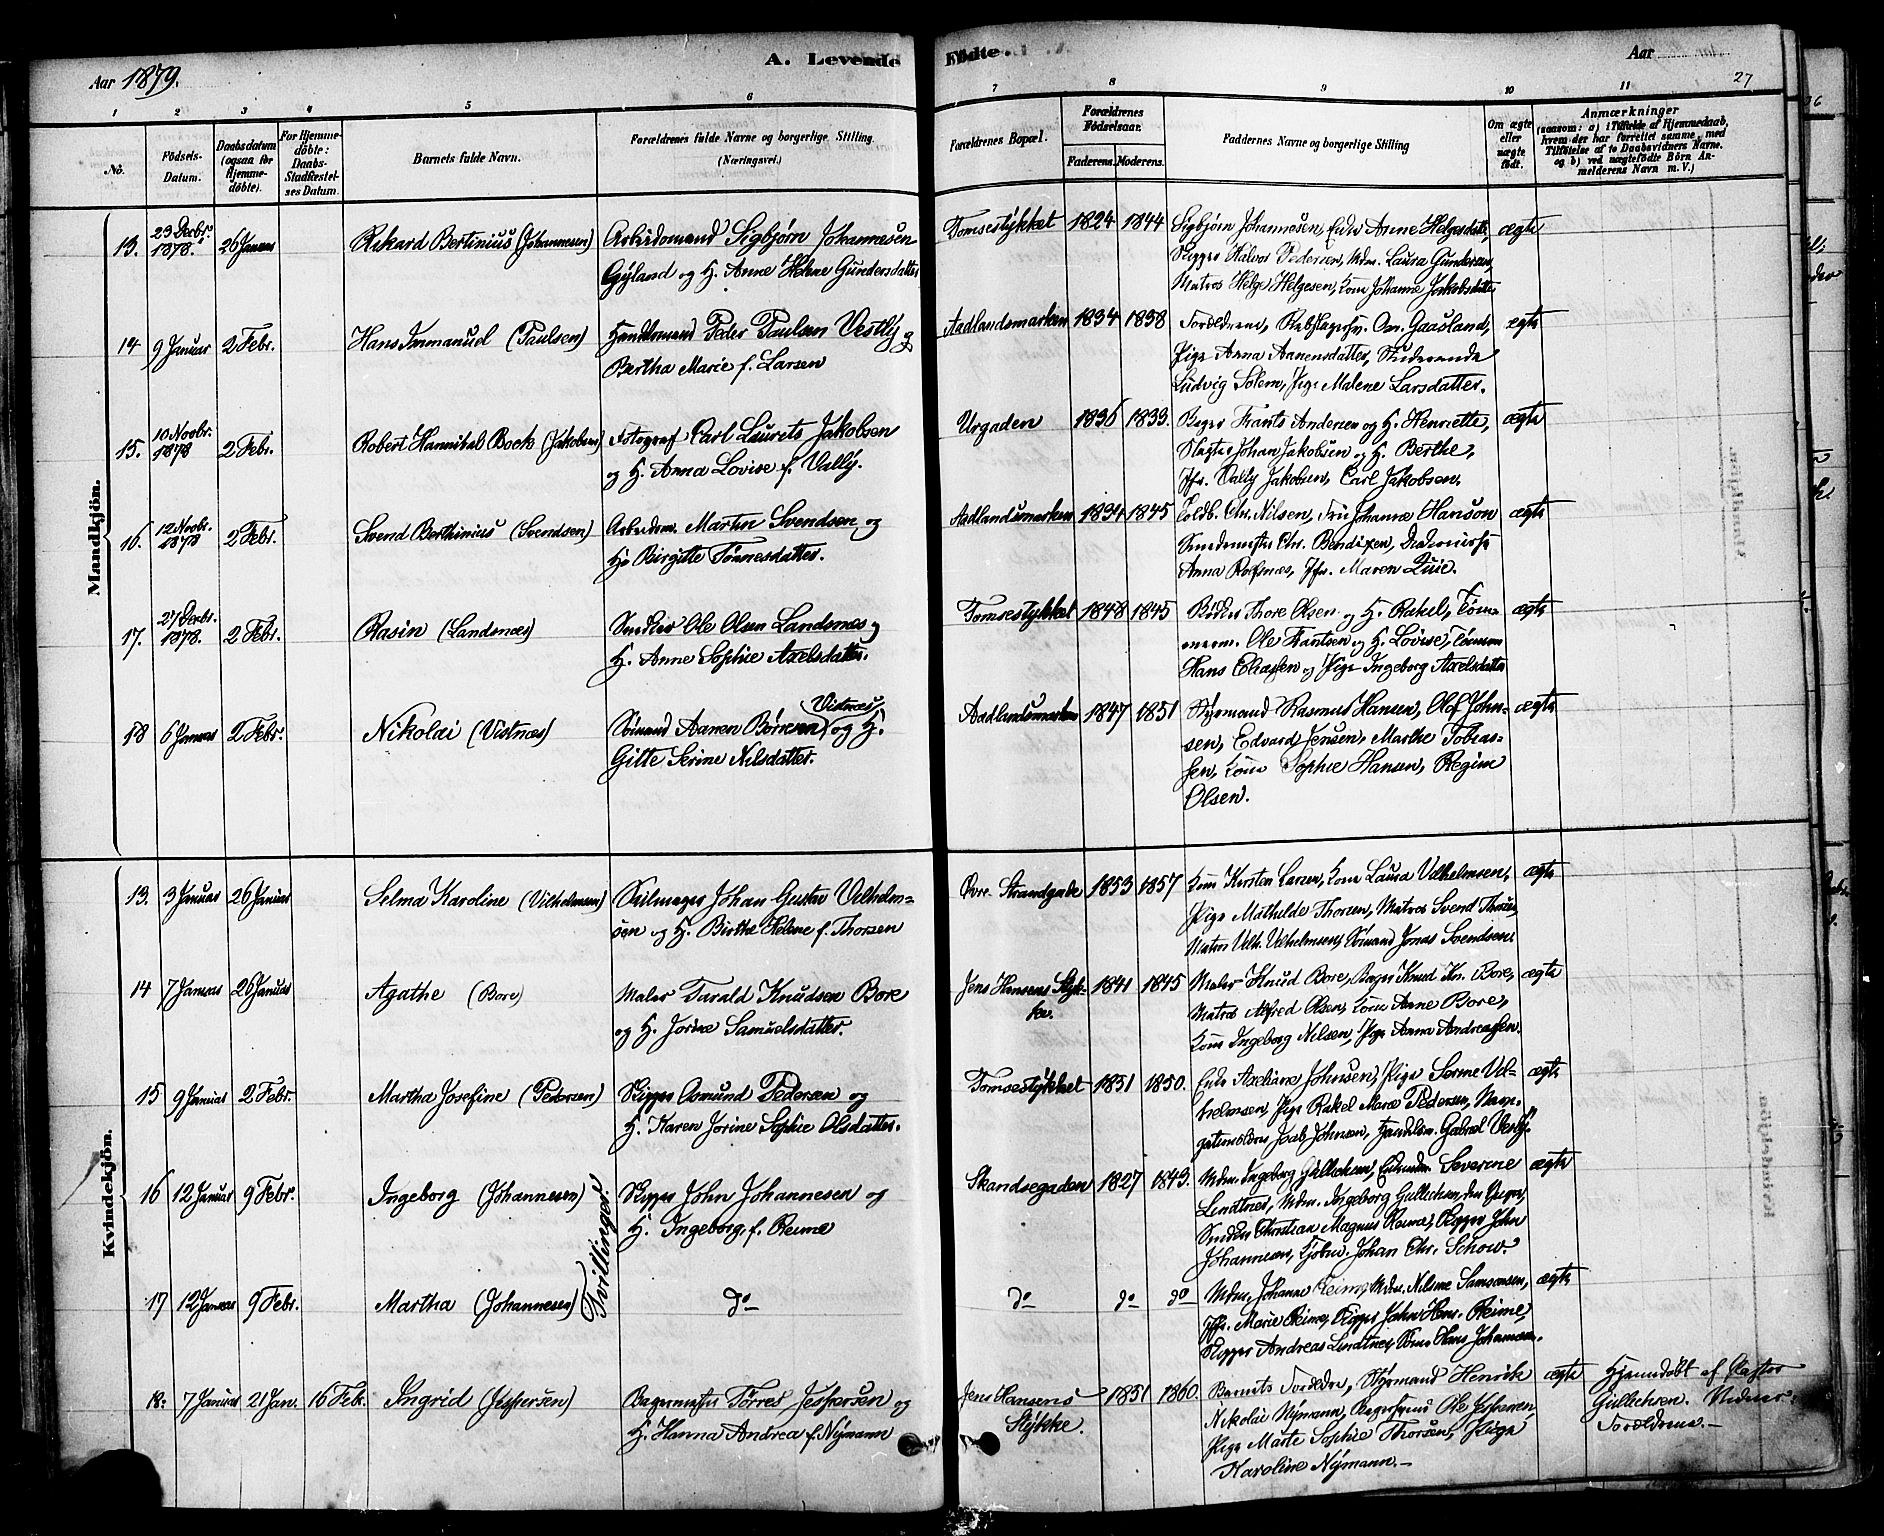 Aar 1879.
A. Levende Fødte.
Aar
27
1 2 3 4 5 6 7 8 9 10 11
No.
Fødsels-Datum.
Daabsdatum (ogsaa for Hjemmedøbte).
For Hjemmedøbte: Daabs-Stadfæstelses Datum.
Barnets fulde Navn.
Forældrenes fulde Navne og borgerlige Stilling. (Næringsvei.)
Forældrenes Bopæl.
Forældrenes Fødselsaar.
Faderens. Moderens.
Faddernes Navne og borgerlige Stilling
Om ægte eller uægte født.
Anmærkninger
(saasom: a) i Tilfælde af Hjemmedaab, hvem der har forrettet samme, med Tilføielse af to Daabsvidners Navne. og b) ved uægtefødte Børn Anmelderens Navn m. V.)
Mandkjön.
13. 23 Decbr. 1878. 26 Januar Rikard Bertinius (Johannesen) Arbeidsmand Sigbjørn Johannesen Gyland og H. Anne Helene Gundersdatter Tomsestykket 1824 1844 Sigbjørn Johannesen, Enke Anne Helgesdatter, ægte
Skipper Halvor Pedersen, Mdm. Laura Gundersen,
Matros Helge Helgesen, Kone Johanne Jakobsdatter
14 9 Januar 2 Febr. Hans Immanuel (Paulsen) Handelsmand Peder Paulsen Vestly og Bertha Marie f. Larsen Aadlandsmarken 1834 1838 Forældrene, Rebslagersv. Om. Gaasland, ægte
Pige Anna Aanensdatter, Studerende
Ludvig Solem, Pige Malene Larsdatter.
15. 10 Novbr. 1878 2 Febr. Robert Hannibal Bock (Jakobsen) Fotograf Carl Laurets Jakobsen og H. Anna Lovise f. Vally. Urgaden 1836 1833. Bager Frants Andersen og H. Henriette, ægte
Slagter Johan Jakobsen og H. Berthe,
Jfr. Vally Jakobsen, Carl Jakobsen.
16. 12 Novbr. 1878 2 Febr. Svend Berthinius (Svendsen) Arbeidsm. Martin Svendsen og H. Birgitte Tønnesdatter. Aadlandsmarken 1834 1845 Toldb. Chr. Nilsen, Fru Johanne Hanson ægte
Smedemester Chr. Bendixen,
Anna Rolfsnæs, Jfr. Maren Quie.
17. 27 Decbr. 1878. 2 Febr. Rasin (Landsnæs) Snedker Ole Olsen Landsnæs og H. Anne Sophie Axelsdatter. Tomsestykket 1848 1845 Bødker Thore Olsen og H. Rakel, Tøm-
merm. Ole Frantsen og H. Lovise, Tømmerm
Hans Eliassen og Pige Ingeborg Axelsdatter ægte
18 6 Januar 2 Febr. Nikolai (Vistnæs) Sømand Aanen Børresen (Vistnæs) og H. Gitte Serine Nilsdatter. Aadlandsmarken 1847 1851 Styrmand Rasmus Hansen, Olaf John- ægte
sen, Edvard Jensen, Marthe Tobias-
sen, Kone Sophie Hansen, Regine
Olsen.
Kvindekjön.
13. 3 Januar 26 Januar Selma Karoline (Vilhelmsen) Seilmager Johan Gustav Vilhelm-
sen og H. Birthe Helene f. Thorsen Øvre Strandgade 1853 1857 Kone Kirsten Larsen, Kone Laura Vilhelmsen, ægte
Pige Mathilde Thorsen, Matros Svend Thorsen,
Matros Vilh. Vilhelmsen, Sømand Jonas Svendsen.
14 7 Januar 26 Januar Agathe (Bore) Maler Tarald Knudsen Bore og H. Jorine Samuelsdatter. Jens Hansens Styk-
ke. 1841 1845 Maler Knud Bore, Bager Knud Kn. Bore, ægte
Matros Alfred Olsen, Kone Anne Bore,
Kone Ingeborg Nilsen, Pige Anna Andreassen.
15 9 Januar 2 Febr. Martha Josefine (Pedersen) Skipper Osmund Pedersen og H. Karen Jorine Sophie Olsdatter. Tomsestykket 1851 1850. Enke Axeliane Johnsen, Pige Serine Vil- ægte
helmsen, Pige Rakel Marie Pedersen,
Jacob Johnsen, Handelsm. Gabriel Vestly.
16 12 Januar 9 Febr. Ingeborg (Johannesen) Skipper John Johannesen og H. Ingeborg f. Reime Skandsegaden 1827 1843. Mdm. Ingeborg Gullichsen, Severine ægte
Lindtnes, Mdm. Ingeborg Gullichsen,
Snedker Christian Magnus Reime, Skipper John
Johannesen, Kjøbm. Johan Chr. Schow.
Tvillinger.
17 12 Januar 9 Febr. Martha (Johannesen) do do do do Mdm. Johanne Reime, Mdm. Nilsine Samsonsen, ægte
Jfr. Marie Reime, Skipper John Hans. Reime,
Skipper Andreas Lindtnes, Hans Johannesen.
18. 7 Januar 21 Jan. 16 Febr. Ingrid (Jespersen) Bagermester Tørres Jespersen og H. Hanna Andrea f. Nymann Jens Hansens
Stykke. 1851 1860. Barnets Forældre, Styrmand Henrik ægte Hjemmdøbt af Pastor
Nikolai Nymann, Bagersvend Ole Jespersen, Gullichsen. Vidner:
Pige Marte Sophie Thorsen, Pige Forældrene.
Karoline Nymann.